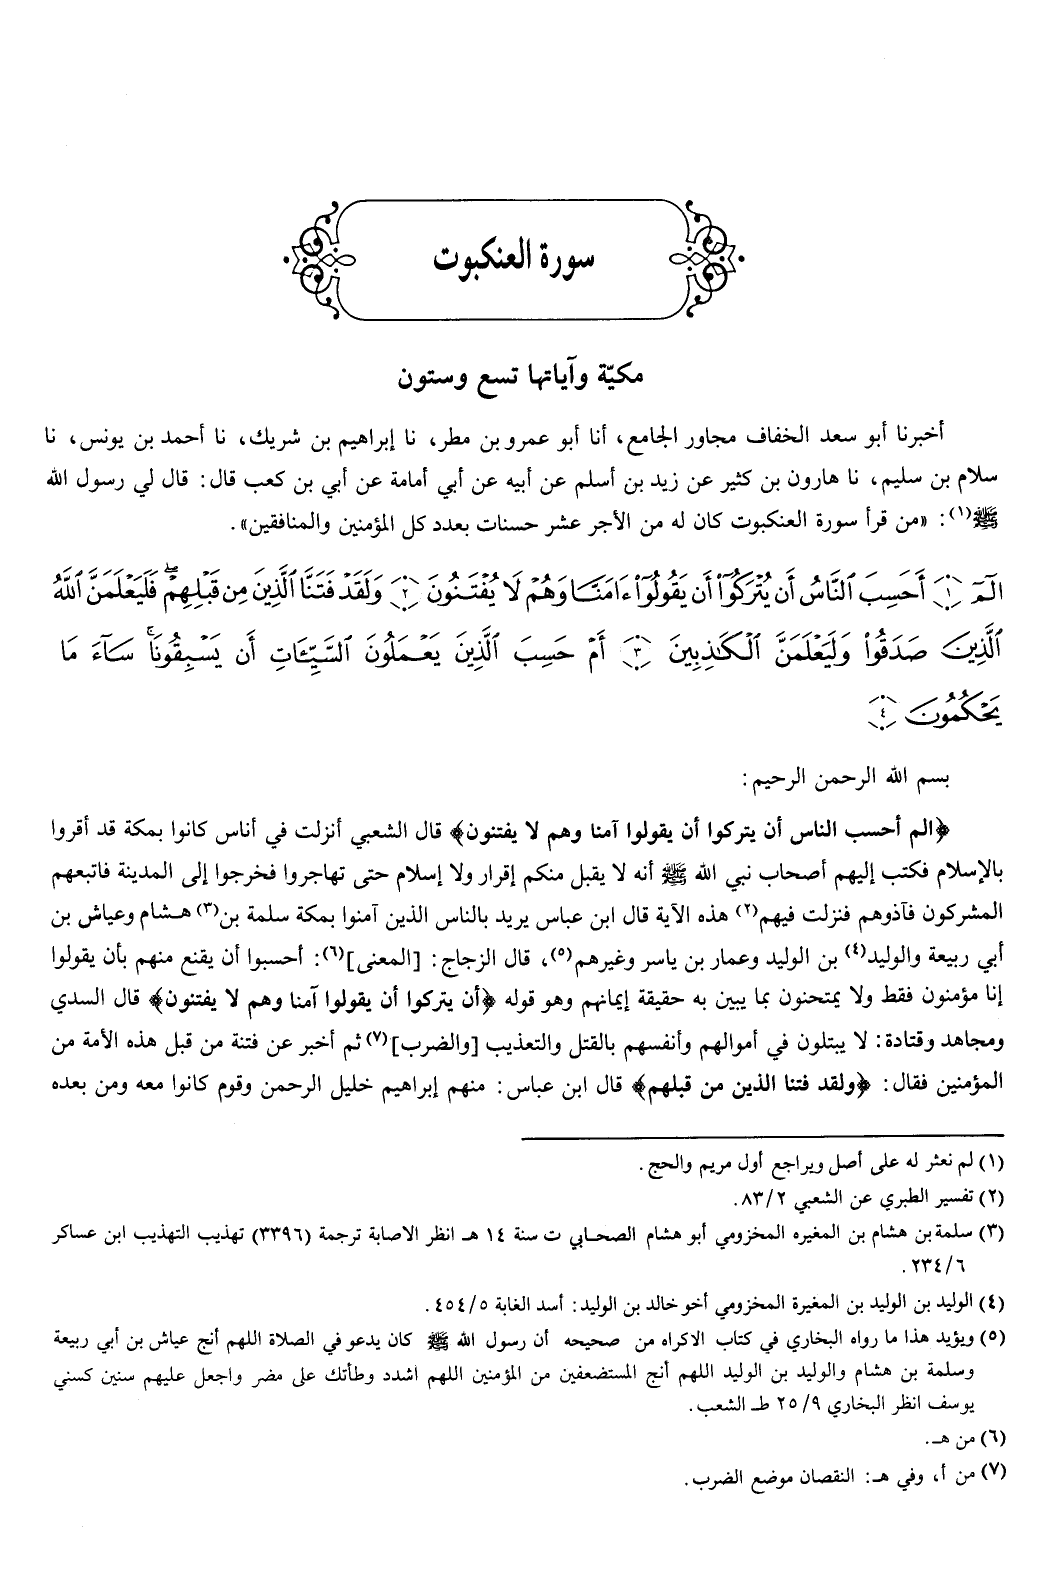 سورة العنكبوت
مكيّة وآياتها تسع وستون
أخبرنا أبو سعد الخفاف مجاور الجامع، أنا أبو عمرو بن مطر، نا إبراهيم بن شريك، نا أحمد بن يونس، نا
سلام بن سليم، نا هارون بن كثير عن زيد بن أسلم عن أبيه عن أبي أمامة عن أبي بن كعب قال: قال لي رسول الله
ﷺ(١): «من قرأ سورة العنكبوت كان له من الأجر عشر حسنات بعدد كل المؤمنين والمنافقين».
الٓمٓ ۝١ أَحَسِبَ ٱلنَّاسُ أَن يُتْرَكُوٓا۟ أَن يَقُولُوٓا۟ ءَامَنَّا وَهُمْ لَا يُفْتَنُونَ ۝٢ وَلَقَدْ فَتَنَّا ٱلَّذِينَ مِن قَبْلِهِمْ ۖ فَلَيَعْلَمَنَّ ٱللَّهُ
ٱلَّذِينَ صَدَقُوا۟ وَلَيَعْلَمَنَّ ٱلْكَٰذِبِينَ ۝٣ أَمْ حَسِبَ ٱلَّذِينَ يَعْمَلُونَ ٱلسَّيِّـَٔاتِ أَن يَسْبِقُونَا ۚ سَآءَ مَا
يَحْكُمُونَ ۝٤
بسم الله الرحمن الرحيم:
﴿الم أحسب الناس أن يتركوا أن يقولوا آمنا وهم لا يفتنون﴾ قال الشعبي أنزلت في أناس كانوا بمكة قد أقروا
بالإسلام فكتب إليهم أصحاب نبي الله ﷺ أنه لا يقبل منكم إقرار ولا إسلام حتى تهاجروا فخرجوا إلى المدينة فاتبعهم
المشركون فآذوهم فنزلت فيهم(٢) هذه الآية قال ابن عباس يريد بالناس الذين آمنوا بمكة سلمة بن(٣) هشام وعياش بن
أبي ربيعة والوليد(٤) بن الوليد وعمار بن ياسر وغيرهم(٥)، قال الزجاج: [المعنى](٦): أحسبوا أن يقنع منهم بأن يقولوا
إنا مؤمنون فقط ولا يمتحنون بما يبين به حقيقة إيمانهم وهو قوله ﴿أن يتركوا أن يقولوا آمنا وهم لا يفتنون﴾ قال السدي
ومجاهد وقتادة: لا يبتلون في أموالهم وأنفسهم بالقتل والتعذيب [والضرب](٧) ثم أخبر عن فتنة من قبل هذه الأمة من
المؤمنين فقال: ﴿ولقد فتنا الذين من قبلهم﴾ قال ابن عباس: منهم إبراهيم خليل الرحمن وقوم كانوا معه ومن بعده
(١) لم نعثر له على أصل ويراجع أول مريم والحج.
(٢) تفسير الطبري عن الشعبي ٨٣/٢.
(٣) سلمة بن هشام بن المغيره المخزومي أبو هشام الصحابي ت سنة ١٤ هـ انظر الاصابة ترجمة (٣٣٩٦) تهذيب التهذيب ابن عساكر
٢٣٤/٦.
(٤) الوليد بن الوليد بن المغيرة المخزومي أخو خالد بن الوليد: أسد الغابة ٤٥٤/٥.
(٥) ويؤيد هذا ما رواه البخاري في كتاب الاكراه من صحيحه أن رسول الله ﷺ كان يدعو في الصلاة اللهم أنج عياش بن أبي ربيعة
وسلمة بن هشام والوليد بن الوليد اللهم أنج المستضعفين من المؤمنين اللهم اشدد وطأتك على مضر واجعل عليهم سنين كسني
يوسف انظر البخاري ٢٥/٩ طـ الشعب.
(٦) من هـ.
(٧) من أ، وفي هـ: النقصان موضع الضرب.